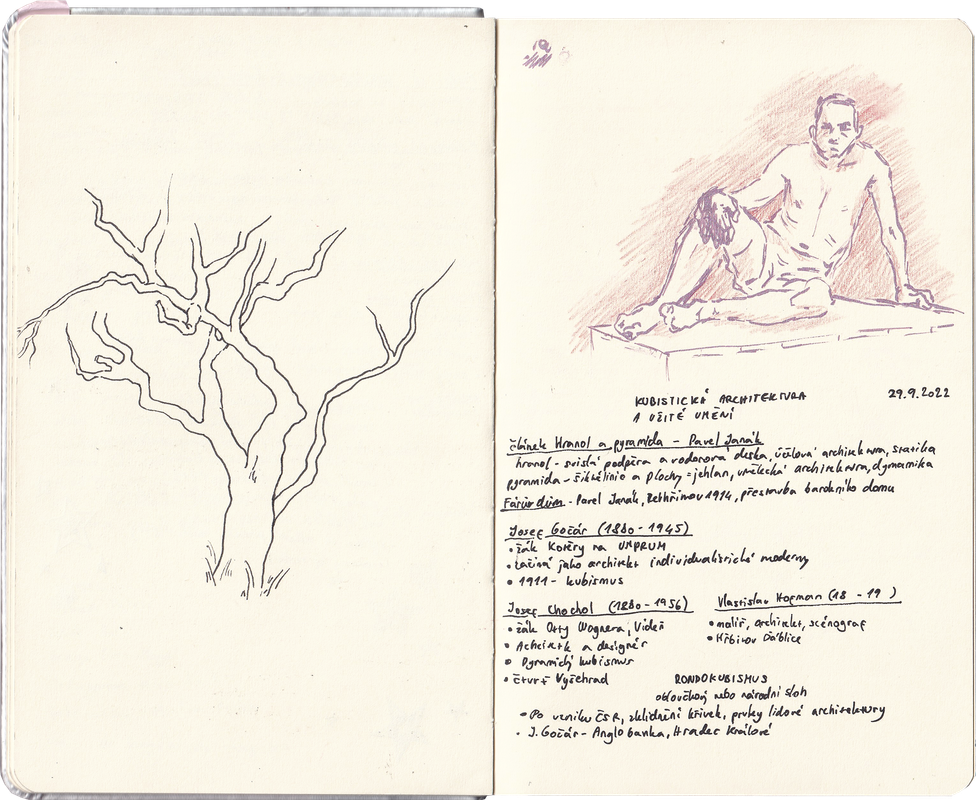 KUBISTICKÁ ARCHITEKTURA
A UŽITÉ UMĚNÍ
29.9.2022
článek Hranol a pyramida - Pavel Janák
hranol - svislá podpěra a vodorovná deska, účelová architektura, statika
pyramida - šikmé linie a plochy = jehlan, umělecká architektura, dynamika
Fárův dům - Pavel Janák, Pelhřimov 1914, přestavba barokního domu
Josef Gočár (1880 - 1945)
• žák Kotěry na UMPRUM
• začíná jako architekt individualistické moderny
• 1911 - kubismus
Josef Chochol (1880 - 1956)
• žák Otty Wagnera, Vídeň
• Architekt a designér
• Dynamický kubismus
• čtvrť Vyšehrad
Vlastislav Hofman (18 - 19 )
• malíř, architekt, scénograf
• Hřbitov Ďáblice
RONDOKUBISMUS
obloučkový nebo národní sloh
• Po vzniku ČSR, zklidnění křivek, prvky lidové architektury
• J. Gočár - Anglobanka, Hradec Králové